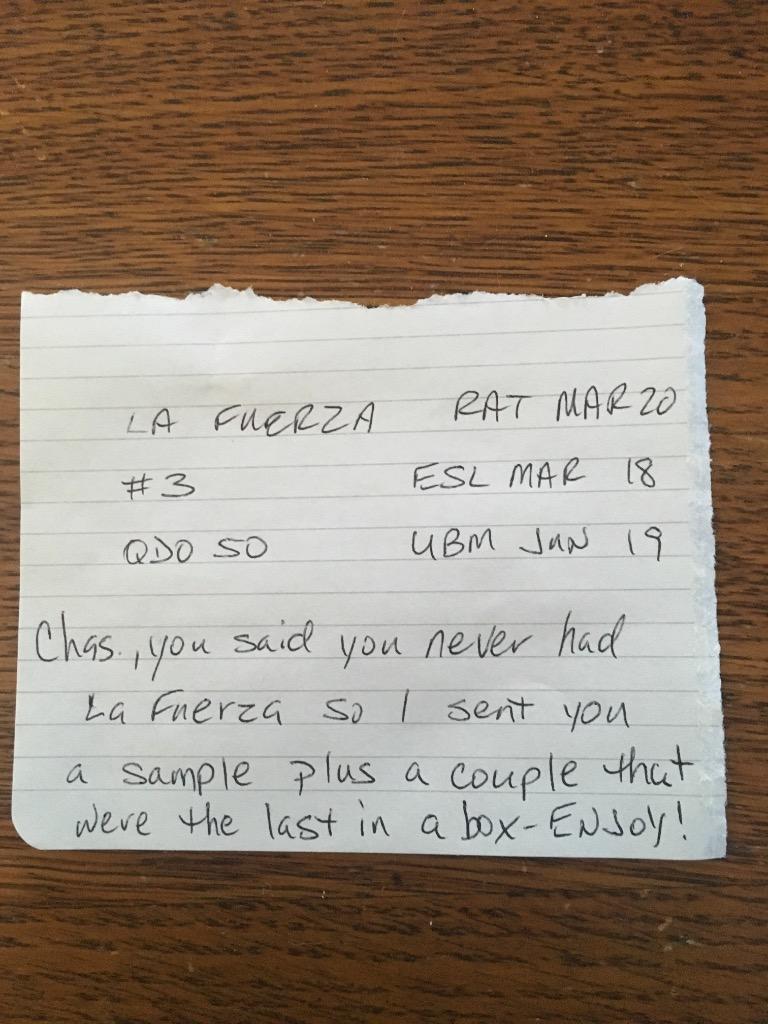 LA FUERZA RAT MAR 20
#3 ESL MAR 18
QDO 50 UBM JUN 19
Chas., you said you never had
La Fuerza so I sent you
a sample plus a couple that
were the last in a box - ENJOY!